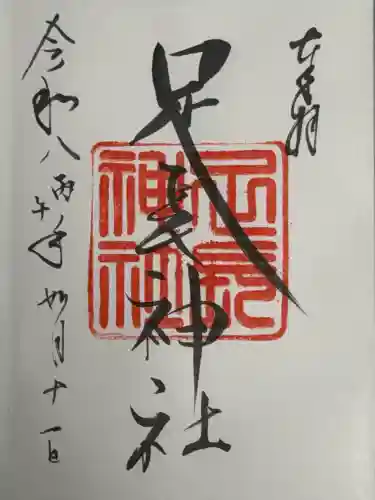 奉拝
足長神社
足長
神社
令和八丙午年如月十一日